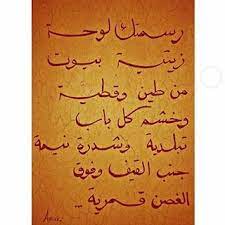 رسمتك لوحة
زيتية بيوت
من طين وقطية
وخشم كل باب
تبلدية وسدرة نيمة
جنب القيف وفوق
الغصن قمرية ...